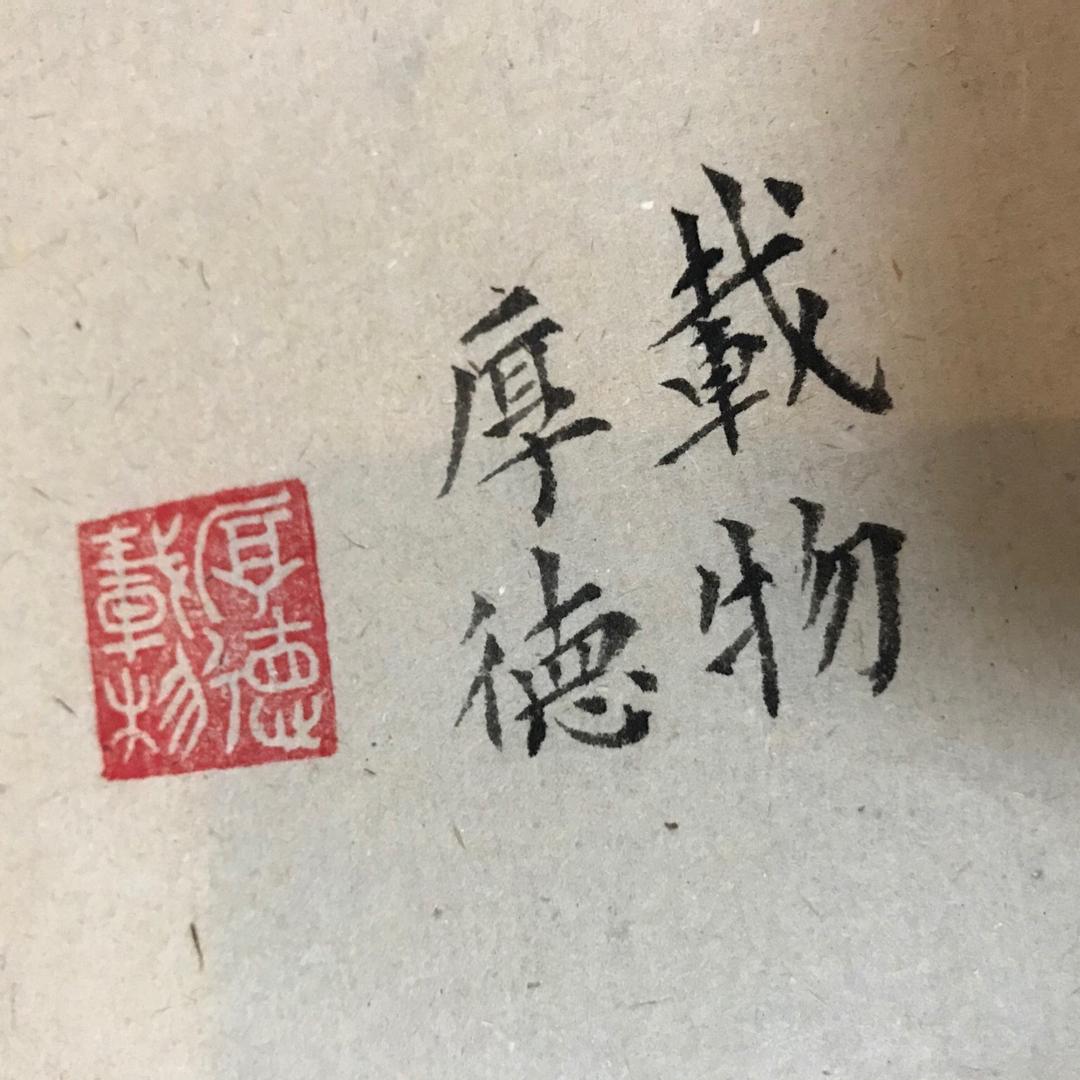 厚德
載物
厚德
載物